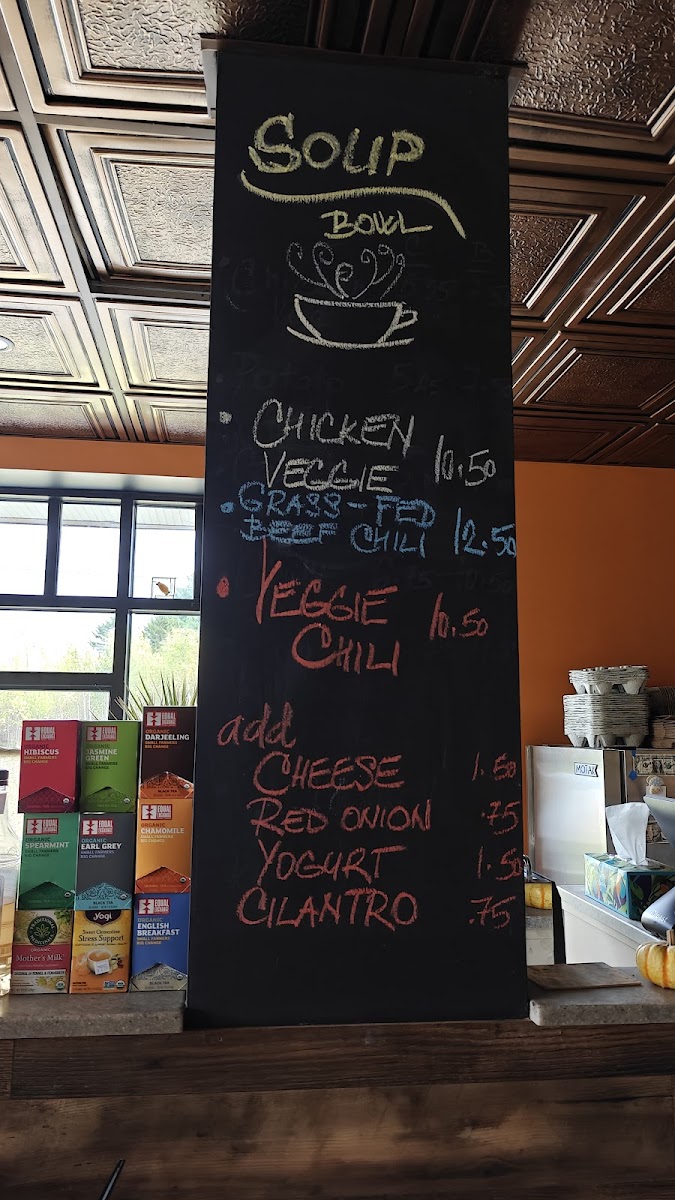 SOUP
BOWL
• CHICKEN
VEGGIE 10.50
• GRASS-FED
BEEF CHILI 12.50
• VEGGIE
CHILI 10.50
add
CHEESE 1.50
RED ONION .75
YOGURT 1.50
CILANTRO .75
EQUAL EXCHANGE
ORGANIC
HIBISCUS
SMALL FARMERS
BIG CHANGE
EQUAL EXCHANGE
ORGANIC
JASMINE
GREEN
SMALL FARMERS
BIG CHANGE
EQUAL EXCHANGE
ORGANIC
DARJEELING
SMALL FARMERS
BIG CHANGE
BLACK TEA
EQUAL EXCHANGE
ORGANIC
SPEARMINT
SMALL FARMERS
BIG CHANGE
EQUAL EXCHANGE
ORGANIC
EARL GREY
SMALL FARMERS
BIG CHANGE
BLACK TEA
EQUAL EXCHANGE
ORGANIC
CHAMOMILE
SMALL FARMERS
BIG CHANGE
ORGANIC
Mother's Milk
yogi
Sweet Clementine
Stress Support
EQUAL EXCHANGE
ORGANIC
ENGLISH
BREAKFAST
SMALL FARMERS
BIG CHANGE
BLACK TEA
MOTAK